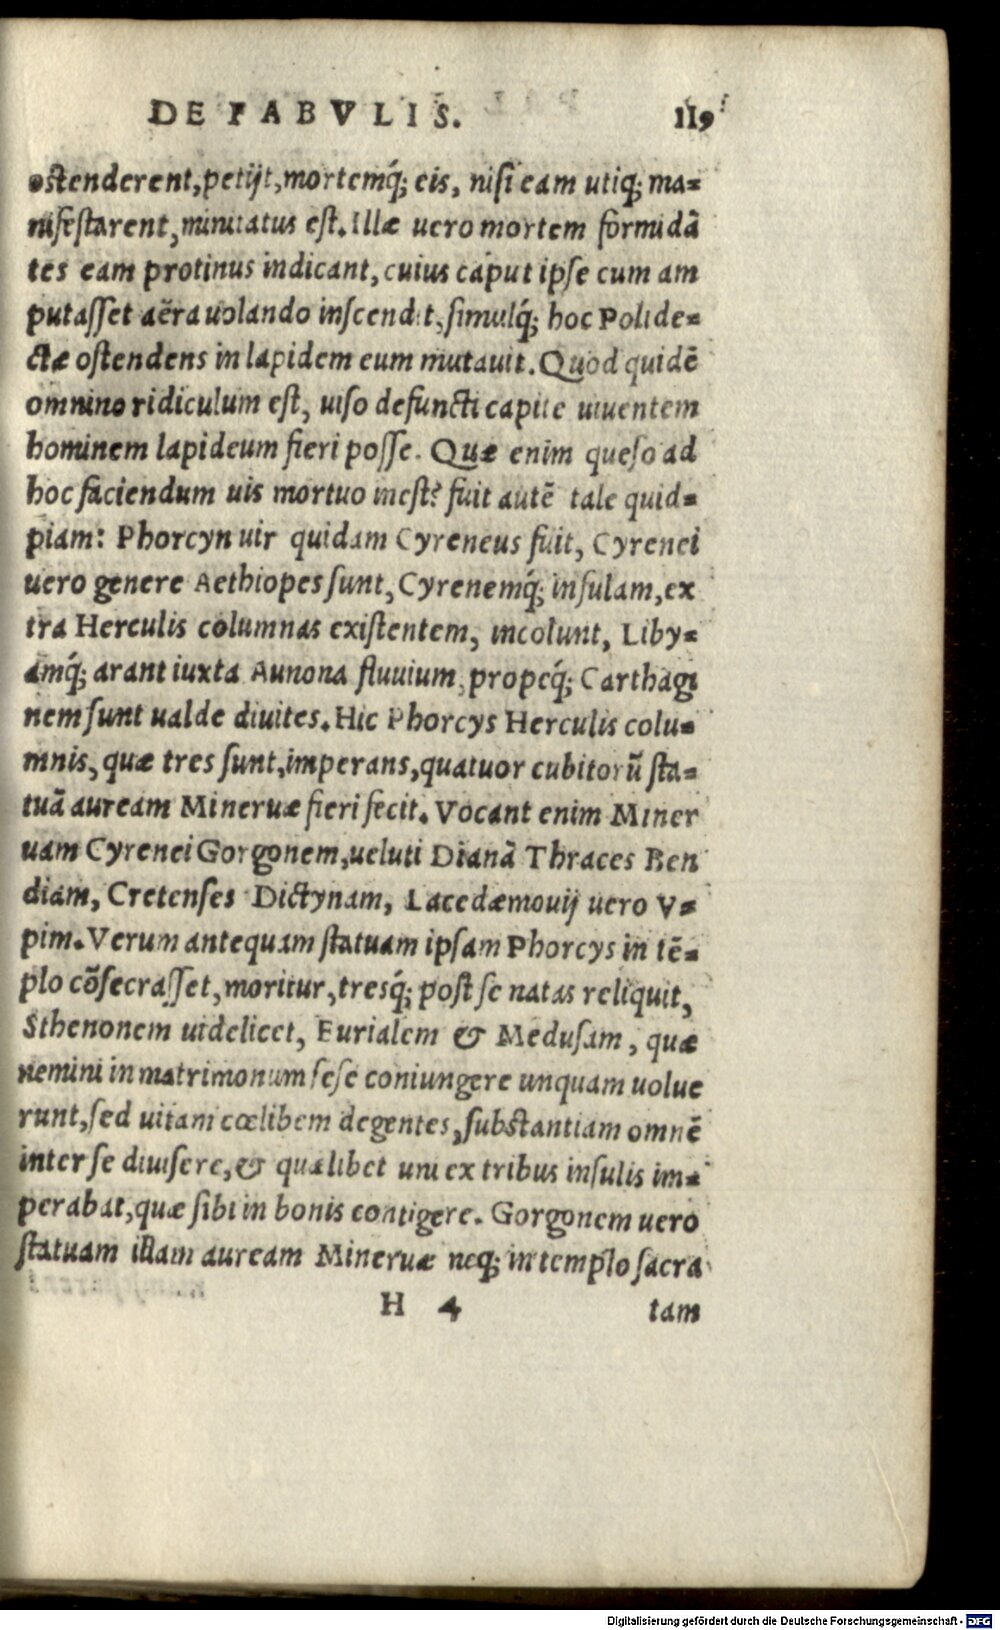 DE FABVLIS. 119
ostenderent, petijt, mortemq́; eis, nisi eam utiq; ma=
nifestarent, minitatus est. Illæ uero mortem formidã
tes eam protinus indicant, cuius caput ipse cum am
putasset aëra uolando inscendit, simulq́; hoc Polide=
ctæ ostendens in lapidem eum mutauit. Quod quidẽ
omnino ridiculum est, uiso defuncti capite uiuentem
hominem lapideum fieri posse. Quæ enim queso ad
hoc faciendum uis mortuo inest? fuit autẽ tale quid=
piam: Phorcyn uir quidam Cyreneus fuit, Cyrenei
uero genere Aethiopes sunt, Cyrenemq́; insulam, ex
tra Herculis columnas existentem, incolunt, Liby=
amq́; arant iuxta Aunona fluuium, propeq́; Carthagi
nem sunt ualde diuites. Hic Phorcys Herculis colu=
mnis, quæ tres sunt, imperans, quatuor cubitorũ sta=
tuã auream Mineruæ fieri fecit. Vocant enim Miner
uam Cyrenei Gorgonem, ueluti Dianã Thraces Ben
diam, Cretenses Dictynam, Lacedæmouij uero V=
pim. Verum antequam statuam ipsam Phorcys in tẽ=
plo cõsecrasset, moritur, tresq́; post se natas reliquit,
Sthenonem uidelicet, Eurialem & Medusam, quæ
nemini in matrimonum sese coniungere unquam uolue
runt, sed uitam cœlibem degentes, substantiam omnẽ
inter se diuisere, & quælibet uni ex tribus insulis im=
perabat, quæ sibi in bonis contigere. Gorgonem uero
statuam illam auream Mineruæ neq; in templo sacra
H 4 tam
Digitalisierung gefördert durch die Deutsche Forschungsgemeinschaft - DFG